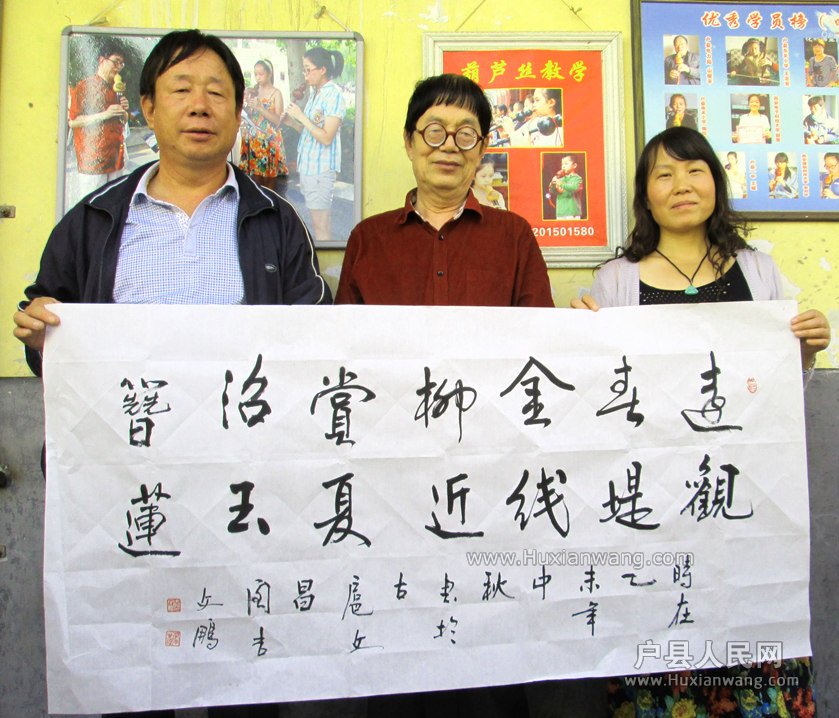 優秀学员榜
葫芦丝教学
201501580
遠觀
春堤
金线
柳近
賞夏
沼玉
簪蓮
時在
乙
未年
中
秋
書於
古
扈文
昌
閣書
文鵬
www.Huxianwang.com
户县人民网
www.Huxianwang.com